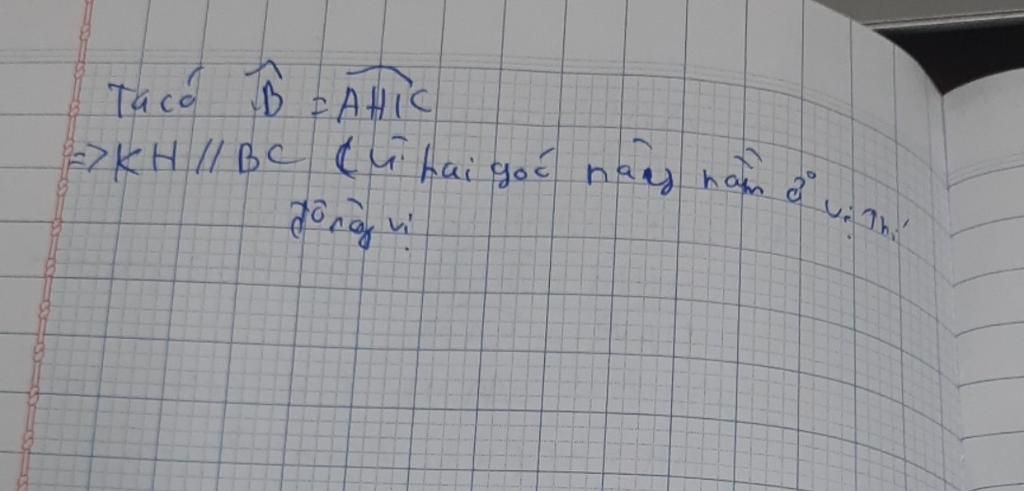 Ta có B̂ = AHK
=> KH // BC (vì hai góc này nằm ở vị trí
đồng vị